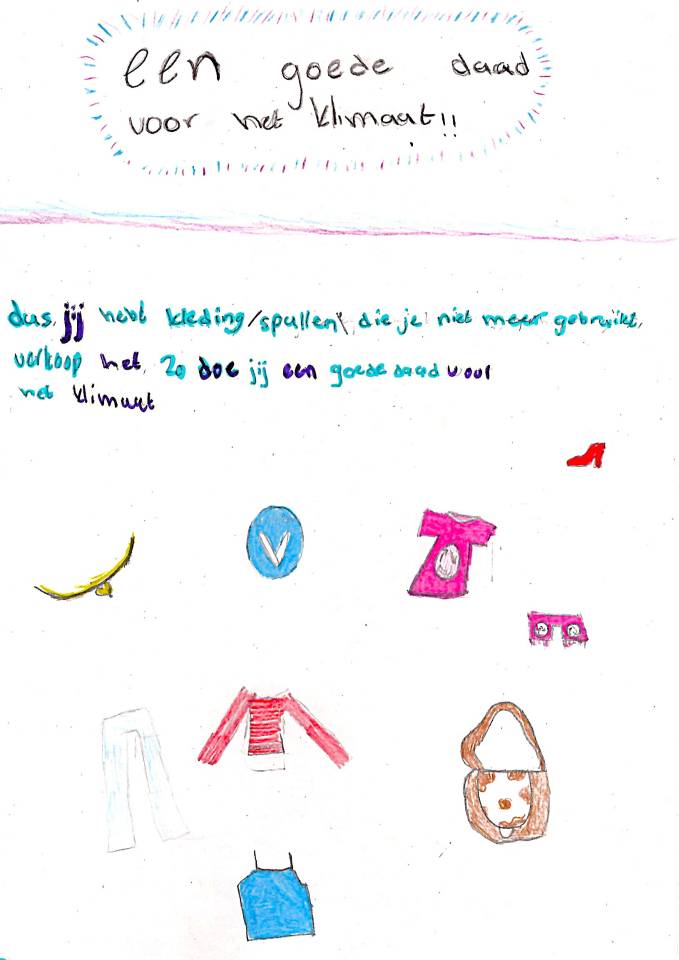 een goede daad
voor het klimaat!!
dus, jij hebt kleding/spullen die je niet meer gebruikt,
verkoop het, zo doe jij een goede daad voor
het klimaat
V